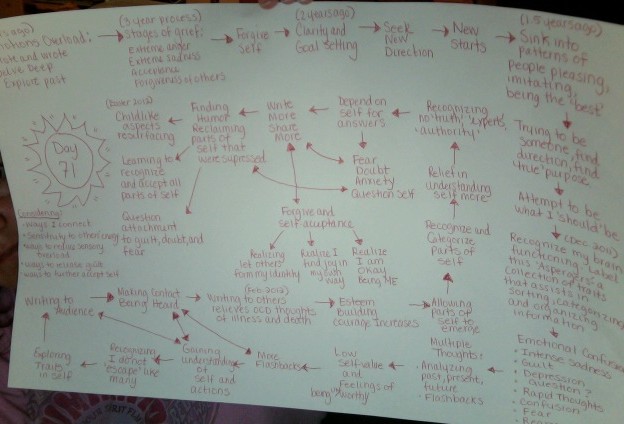 (3 year process)
Stages of grief:
Extreme anger
Extreme sadness
Acceptance
Forgiveness of others
Overload:
and wrote
Deep
Explore past
Forgive
Self
(2 years ago)
Clarity and
Goal Setting
Seek
New
Direction
New
Starts
(1.5 years ago)
Sink into
patterns of
people pleasing,
imitating,
being the "best"
Trying to be
someone, find
direction, find
"true" purpose
Attempt to be
what I "should" be
Recognize my brain
functioning. Label
this "Aspergers" a
Collection of traits
that assists in
sorting, categorizing
and organizing
information
Emotional Confusion
• Intense sadness
• Guilt
• Depression
• Question?
• Rapid Thoughts
• Confusion
• Fear
Multiple
Thoughts:
• Analyzing
past, present,
future
• Flashbacks
Low
Self-value
and
Feelings of
being worthy
More
Flashbacks
Gaining
understanding
of
self and
actions
Recognizing
I do not
"escape" like
many
Exploring
Traits
in self
Writing to
Audience
Making Contact
Being Heard
(Feb. 2012)
Writing to others
relieves OCD thoughts
of illness and death
Esteem
building
courage increases
Allowing
parts of
self to
emerge
Recognize and
Categorize
parts of
self
Relief in
understanding
self more
Recognizing
no truth, "experts,"
"authority"
Depend on
self for
answers
Fear
Doubt
Anxiety
Question Self
Write
More
Share
More
Forgive and
self-acceptance
Realizing
let others
form my identity
Realize I
find joy in
my own
way
Realize
I am
okay
Being ME
Finding
Humor
Reclaiming
parts of
self that
were supressed
Childlike
aspects
resurfacing
Learning to
recognize
and accept all
parts of self
Question
attachment
to guilt, doubt, and
fear
Day
71
Considering:
• ways I connect
• ways to reduce sensory
overload
• ways to further accept self